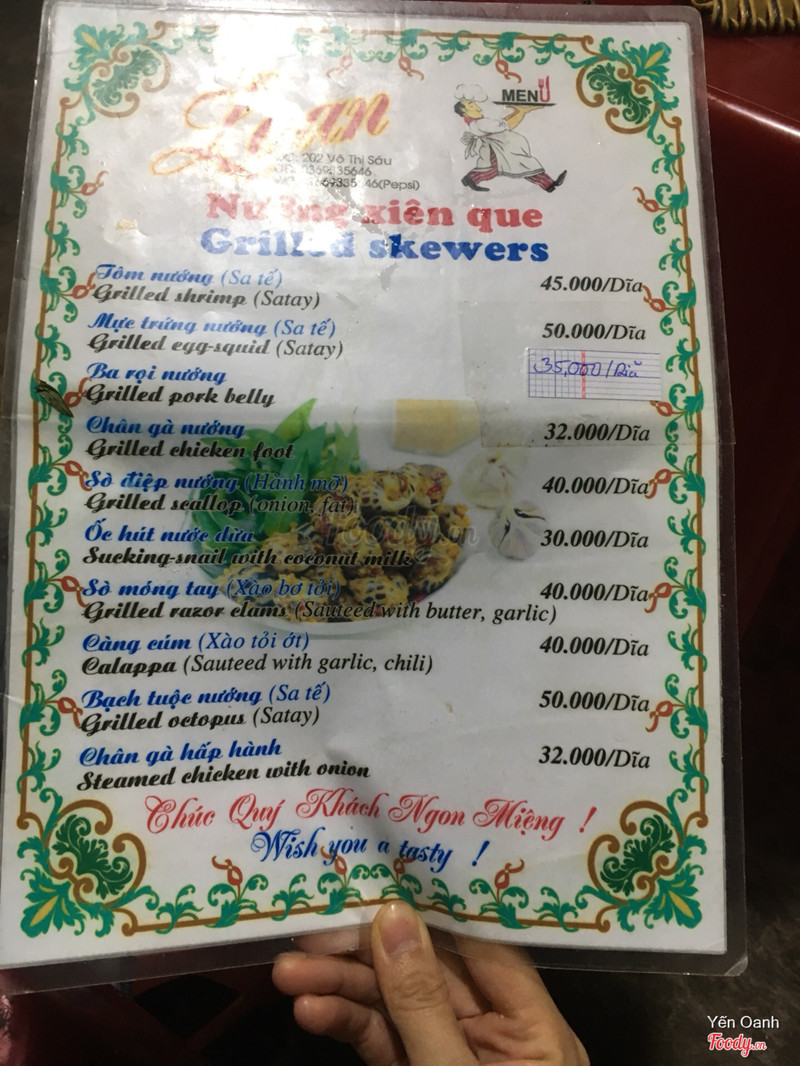 MENU
202 Võ Thị Sáu
Nướng xiên que
Grilled skewers
Tôm nướng (Sa tế)
Grilled shrimp (Satay)
45.000/Dĩa
Mực trứng nướng (Sa tế)
Grilled egg-squid (Satay)
50.000/Dĩa
Ba rọi nướng
Grilled pork belly
35,000/Dĩa
Chân gà nướng
Grilled chicken foot
32.000/Dĩa
Sò điệp nướng (Hành mỡ)
Grilled scallop (onion, fat)
40.000/Dĩa
Ốc hút nước dừa
Sucking-snail with coconut milk
30.000/Dĩa
Sò móng tay (Xào bơ tỏi)
Grilled razor clams (Sauteed with butter, garlic)
40.000/Dĩa
Càng cúm (Xào tỏi ớt)
Calappa (Sauteed with garlic, chili)
40.000/Dĩa
Bạch tuộc nướng (Sa tế)
Grilled octopus (Satay)
50.000/Dĩa
Chân gà hấp hành
Steamed chicken with onion
32.000/Dĩa
Chúc Quý Khách Ngon Miệng !
Wish you a tasty !
Foody.vn
Yến Oanh
Foody.vn